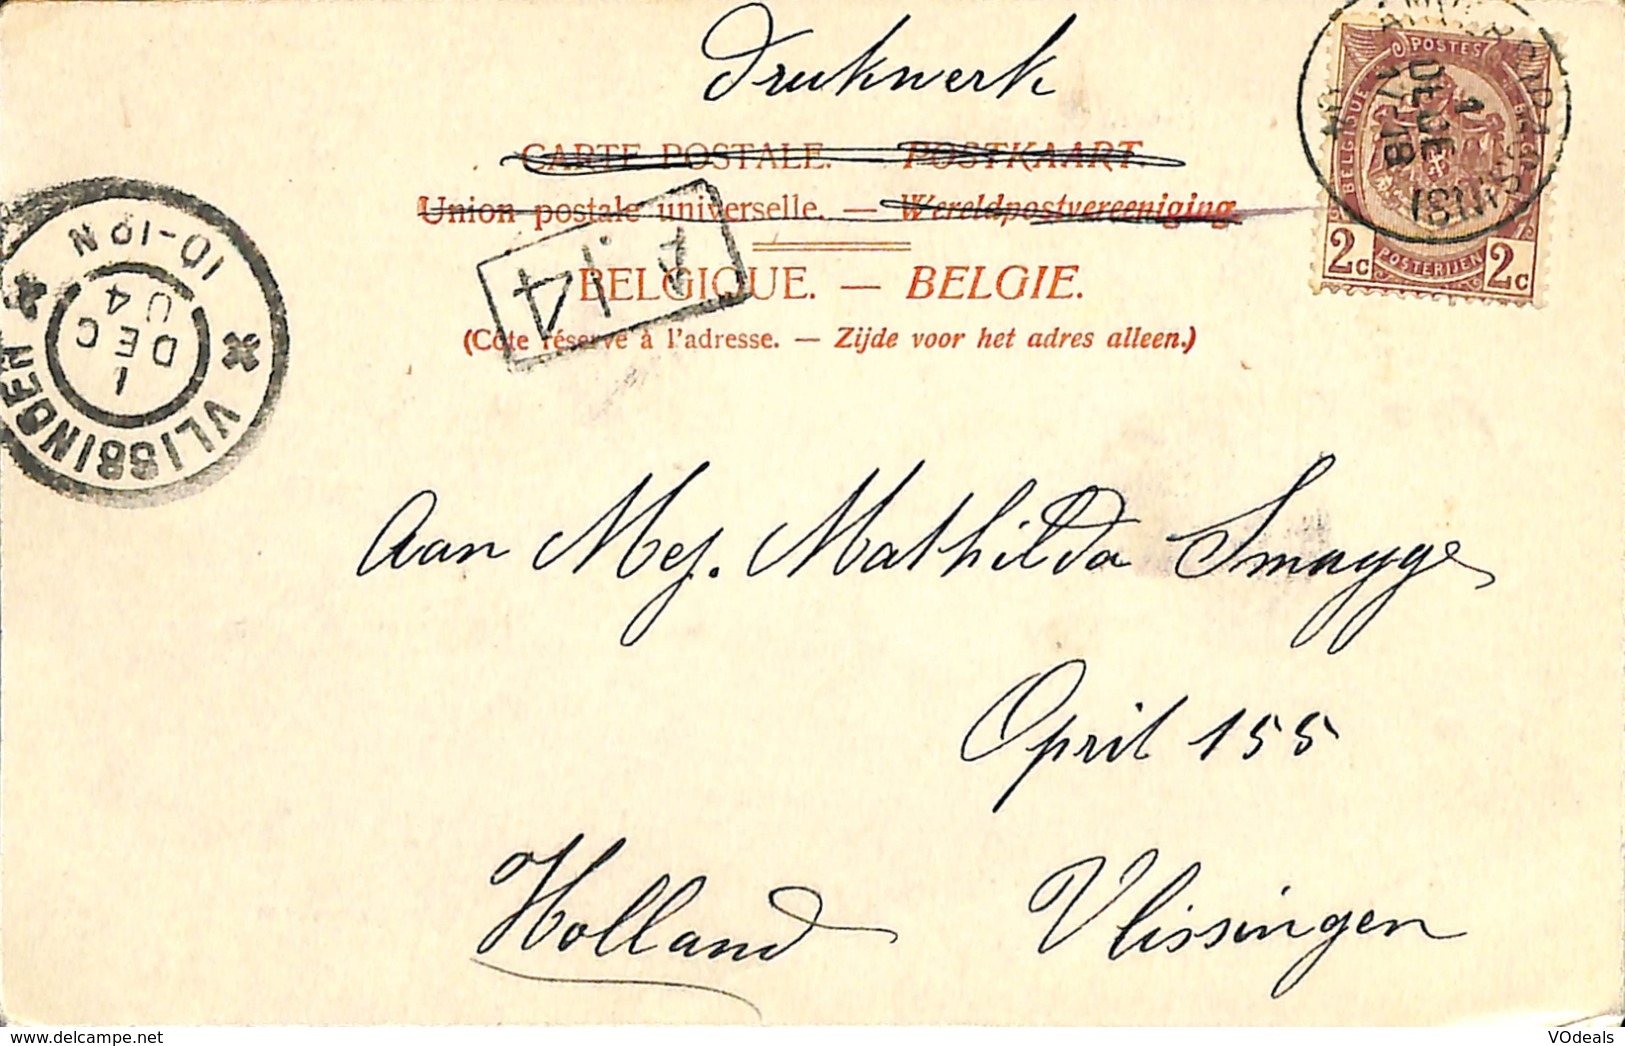 Drukwerk
CARTE POSTALE. — POSTKAART.
Union postale universelle. — Wereldpostvereeniging
BELGIQUE. — BELGIE.
(Côte réservé à l'adresse. — Zijde voor het adres alleen.)
POSTES
BELGIQUE
BELGIË
2c POSTERIJEN 2c
1
DEC DE
17-18
VLISSINGEN
10-12N
1
DEC
04
A.14
Aan Mej. Mathilda Smagge
Opril 155
Holland Vlissingen
VDeals